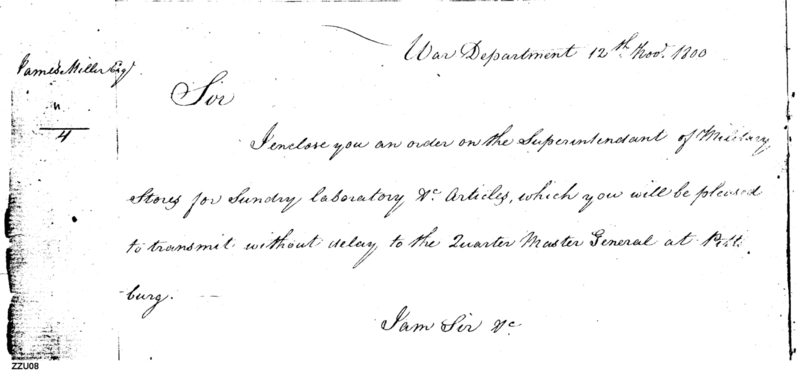 War Department 12th Novr. 1800
James Miller Esqr
Sir
4
I enclose you an order on the Superintendant of Military
Stores for Sundry laboratory &c Articles, which you will be pleased
to transmit without delay to the Quarter Master General at Pitts
burg.
I am Sir &c
ZZU08